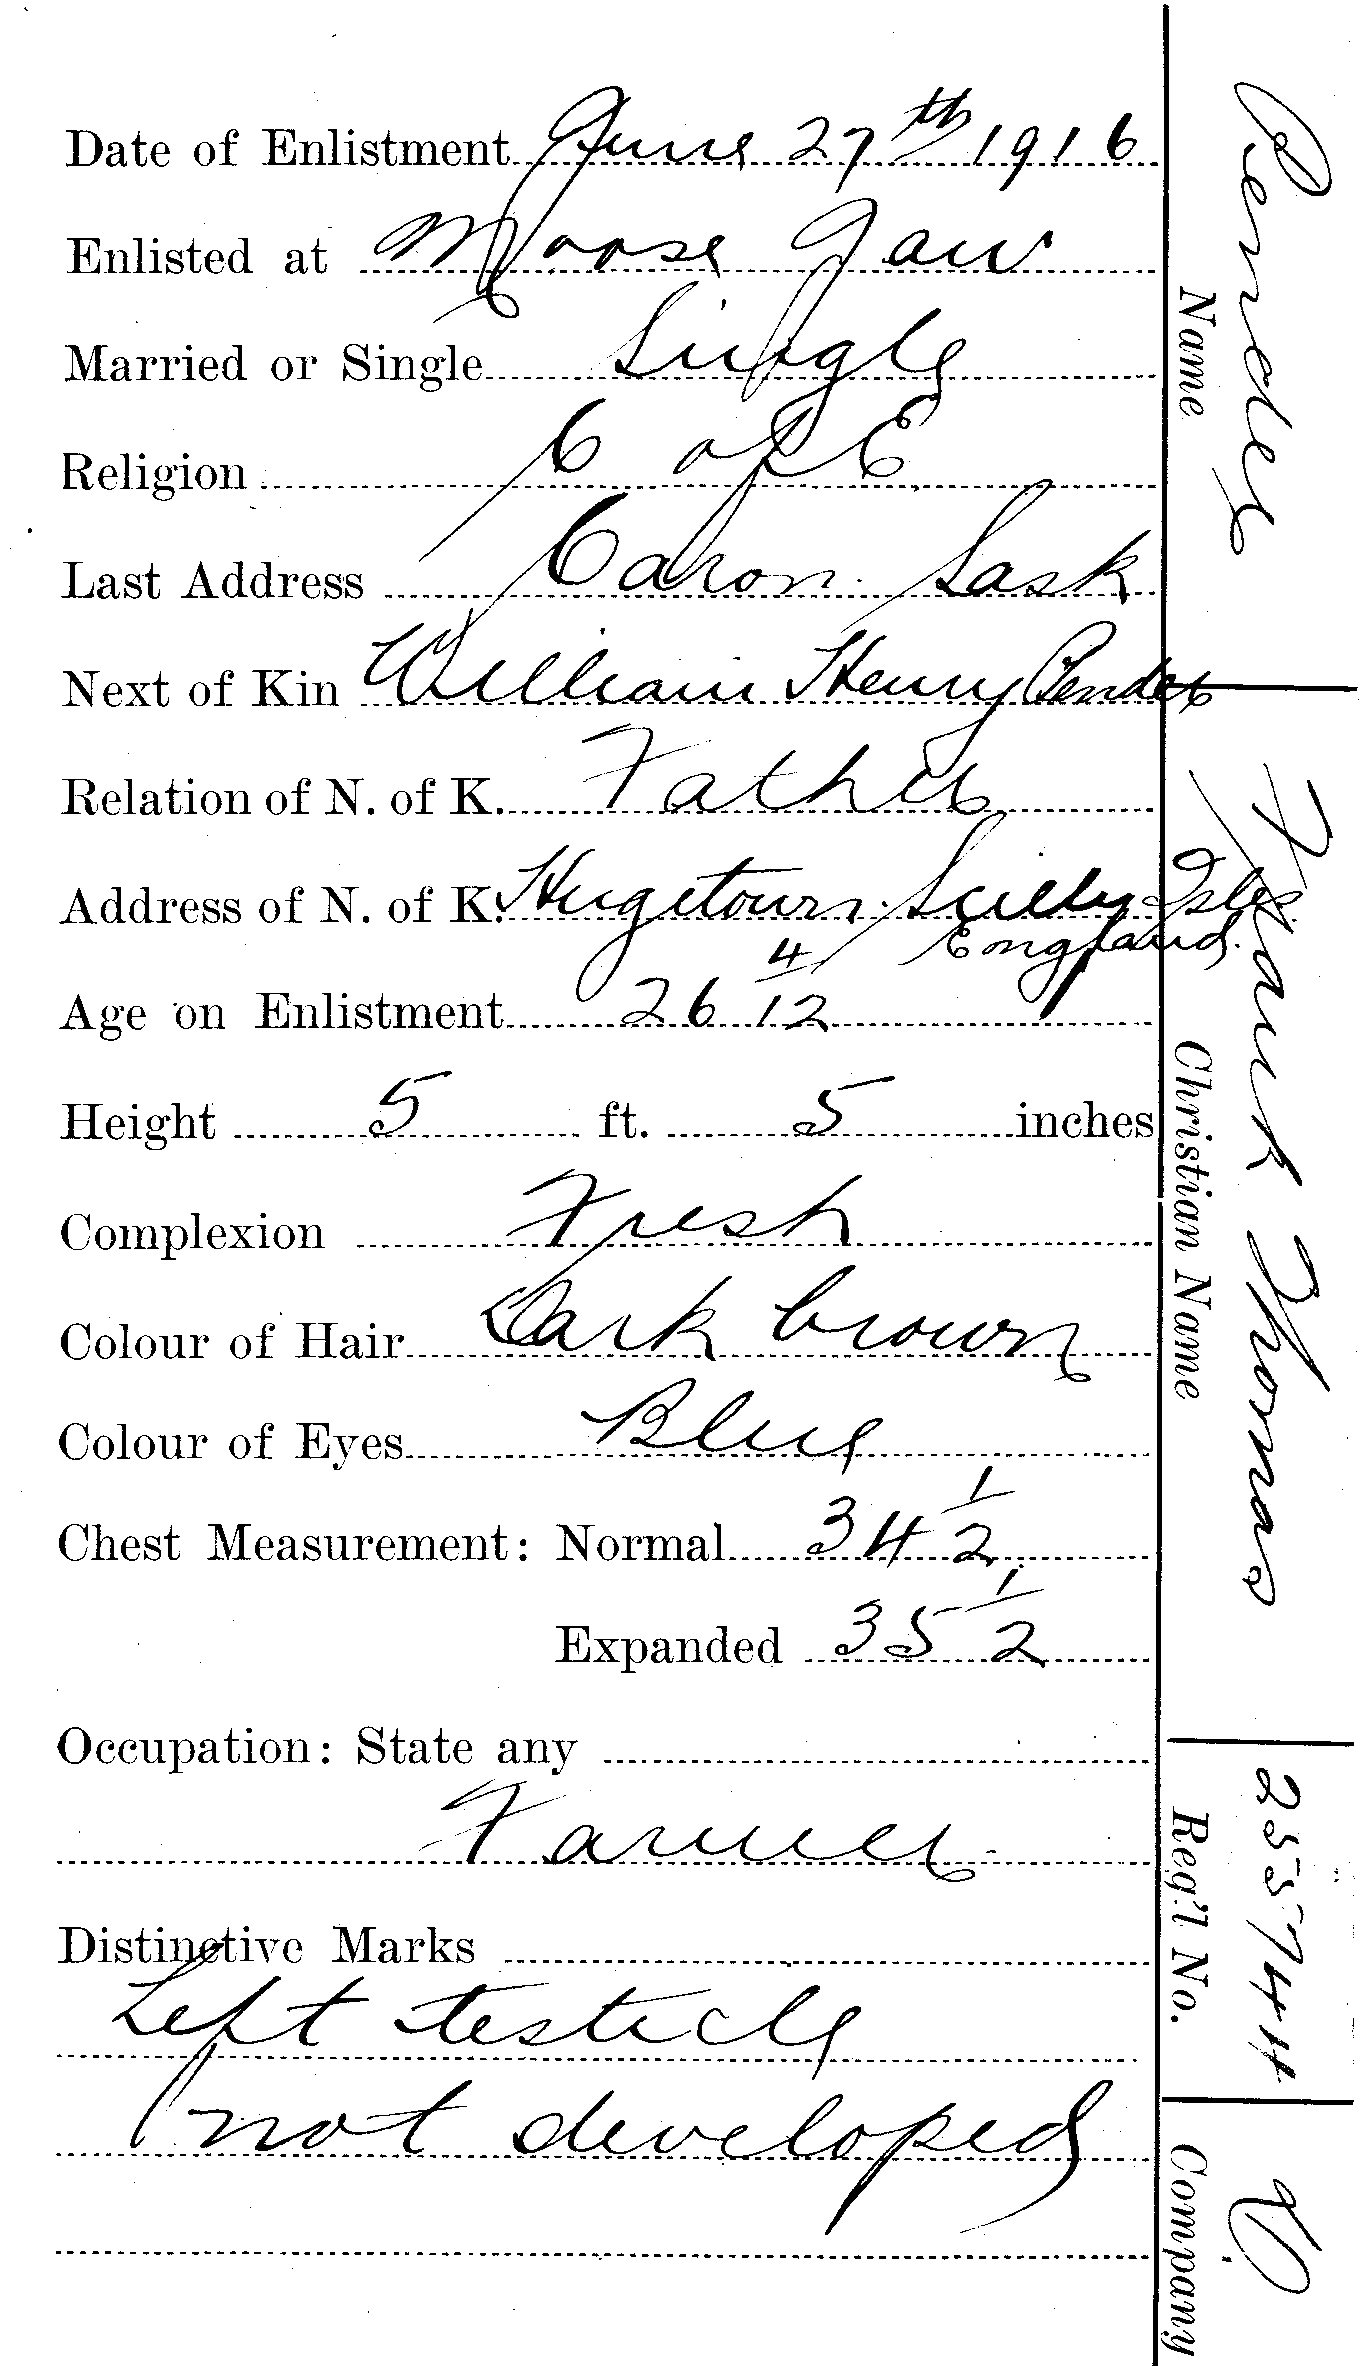 Date of Enlistment June 27th 1916
Enlisted at Moose Jaw
Married or Single Single
Religion C of E
Last Address Caron Sask
Next of Kin William Henry Pender
Relation of N. of K. Father
Address of N. of K. Hugetown Scilly Isles
England.
Age on Enlistment 26 4/12
Height 5 ft. 5 inches
Complexion Fresh
Colour of Hair Dark brown
Colour of Eyes Blue
Chest Measurement: Normal 34 1/2
Expanded 35 1/2
Occupation: State any
Farmer
Distinctive Marks
Left testicle
not developed
Pender
Name
Frank Thomas
Christian Name
255744
Reg'l No.
D
Company